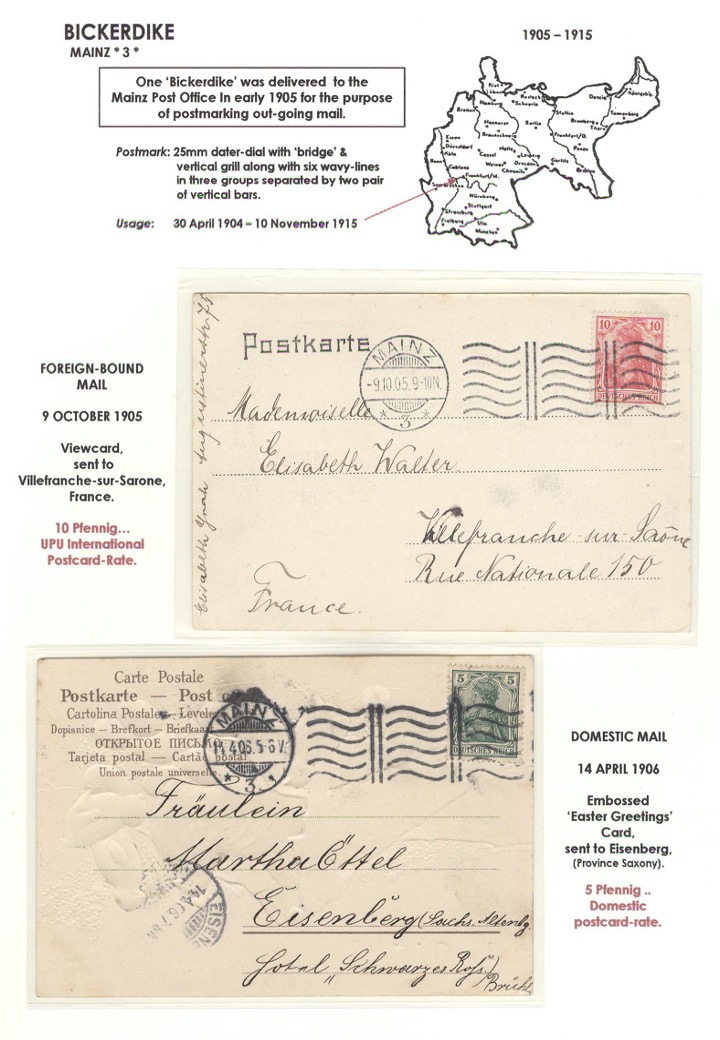 BICKERDIKE
MAINZ * 3 *
1905 – 1915
One ‘Bickerdike’ was delivered to the
Mainz Post Office In early 1905 for the purpose
of postmarking out-going mail.
Postmark: 25mm dater-dial with ‘bridge’ &
vertical grill along with six wavy-lines
in three groups separated by two pair
of vertical bars.
Usage: 30 April 1904 – 10 November 1915
Kiel
Hamburg
Schwerin
Bremen
Danzig
Königsbg.
Stettin
Bromberg
Hannover
Berlin
Braunschweig
Frankfurt/O.
Posen
Essen
Düsseldorf
Köln
Cassel
Halle
Leipzig
Dresden
Chemnitz
Görlitz
Breslau
Bonn
Coblenz
Frankfurt/M.
Saarbrücken
Nürnberg
Stuttgart
Strassburg
Freiburg
Ulm
München
FOREIGN-BOUND
MAIL
9 OCTOBER 1905
Viewcard,
sent to
Villefranche-sur-Sarone,
France.
10 Pfennig…
UPU International
Postcard-Rate.
Postkarte
MAINZ
-9.10.05.9-10N.
* 3 *
10 10
DEUTSCHES REICH
Mademoiselle
Elisabeth Walter
Villefranche-sur-Saône
Rue Nationale 150
France.
Elisabeth Augustinerstr. 75
Carte Postale
Postkarte — Post
Cartolina Postale — Levele
Dopisnice — Brefkort — Briefkaa
ОТКРЫТОЕ ПИСЬМ
Tarjeta postal — Cartã postal
Union postale universelle.
MAINZ
14.4.06.5-6V.
* 3
5 5
DEUTSCHES REICH
Fräulein
Martha Öttel
Eisenberg (Sachs. Altenbg.
Hotel „Schwarzes Roß“)
Brühl
EISENB
14.4.06.7-8N
DOMESTIC MAIL
14 APRIL 1906
Embossed
‘Easter Greetings’
Card,
sent to Eisenberg,
(Province Saxony).
5 Pfennig ..
Domestic
postcard-rate.